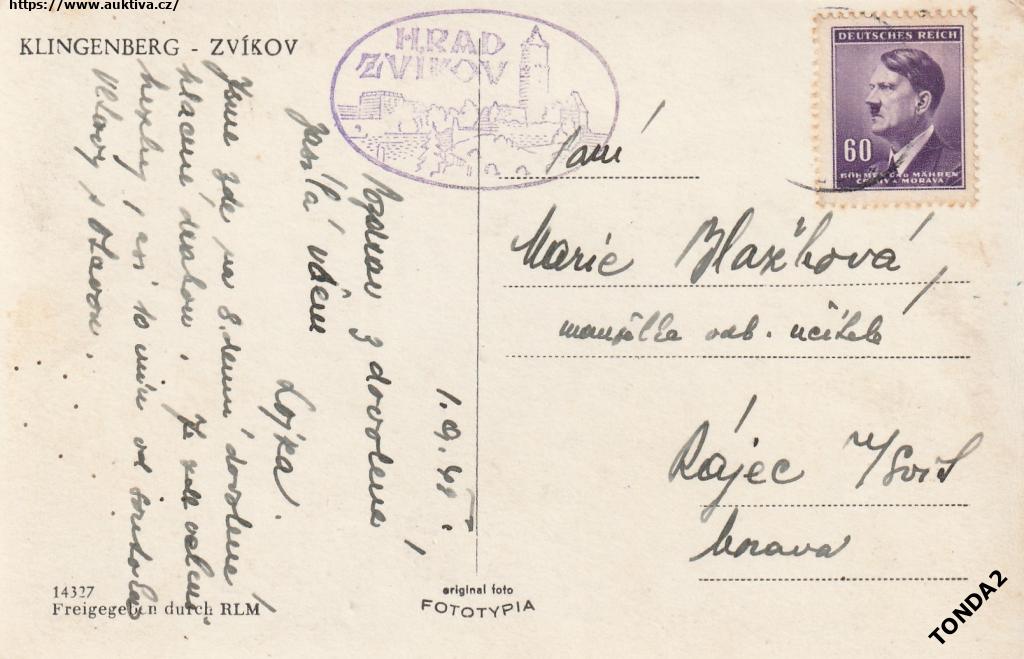 https://www.auktiva.cz/
KLINGENBERG - ZVÍKOV
HRAD
ZVÍKOV
DEUTSCHES REICH
60
BÖHMEN UND MÄHREN
ČECHY A MORAVA
Paní
Marie Blažková
manželka odb. učitele
Rájec n/Svit
Morava
1. 9. 43.
Jsme zde na 8. denní dovolené
placené
hezky i asi 10 min od soutoku
Vltavy s Otavou.
z dovolené
posílá všem
Lojka.
14327
Freigegeben durch RLM
original foto
FOTOTYPIA
TONDA2